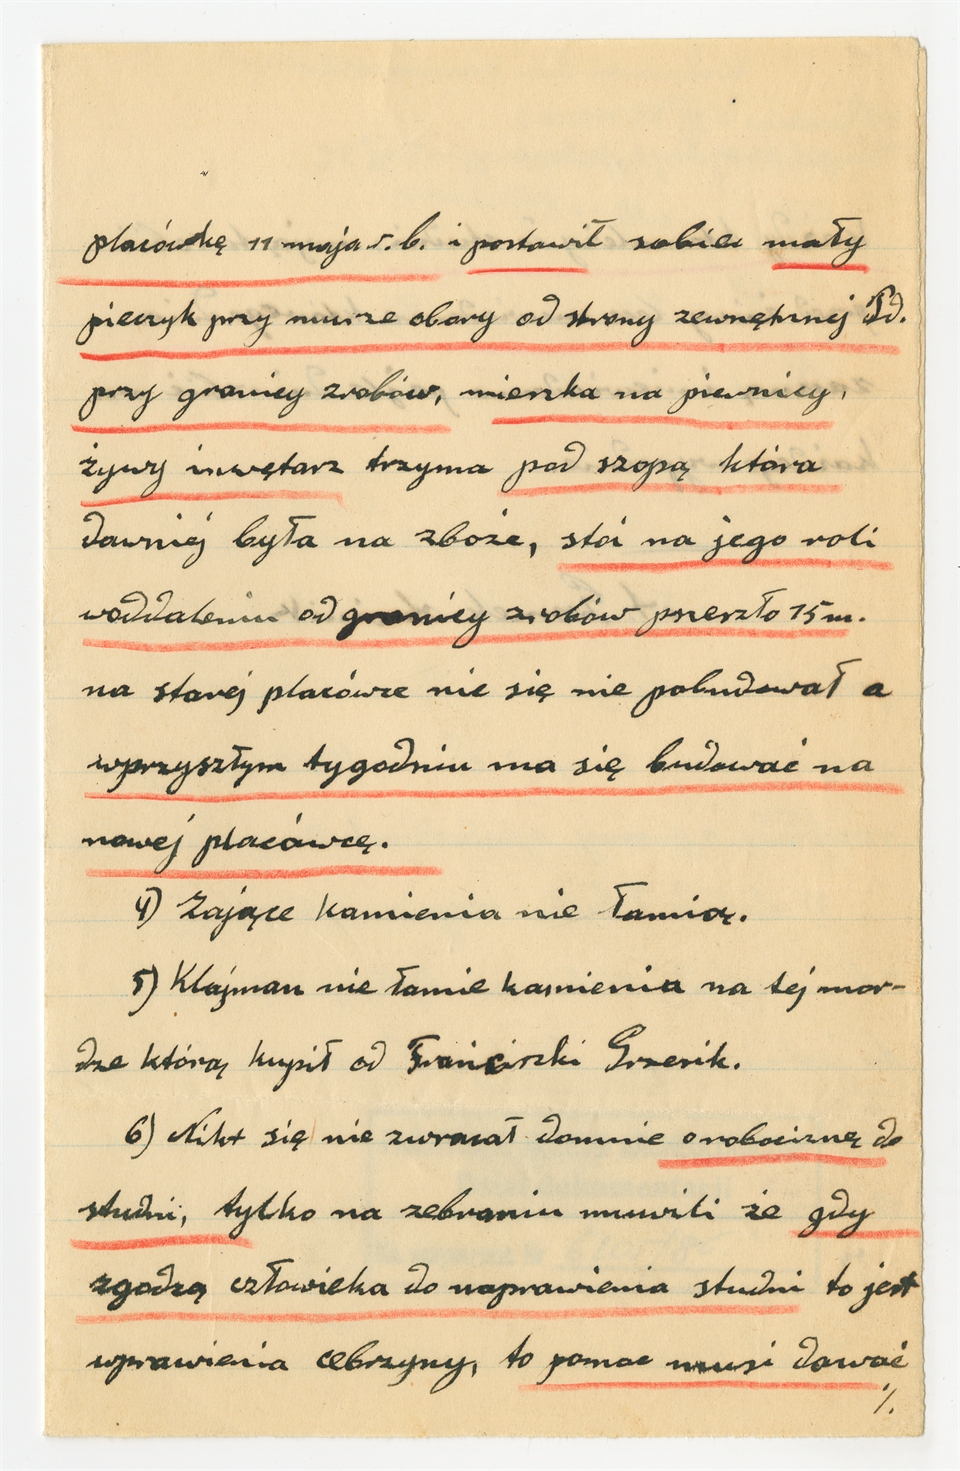 placówkę 11 maja r.b. i postawił sobie mały
pieczyk przy murze obory od strony zewnętrznej Pd.
przy granicy zrobów, mieszka na piewnicy,
żywy inwętarz trzyma pod szopą która
dawniej była na zboże, stói na jego roli
woddaleniu od granicy zrobów przeszło 15 m.
na starej placówce nie się nie pobudował a
wprzyszłym tygodniu ma się budować na
nowej placówcę.
4) Zające kamienia nie łamią.
5) Klajman nie łamie kamienia na tej mor-
dze którą kupił od Franciszki Grzesik.
6) Nikt się nie zwracał domnie orobociznę do
studni, tylko na zebraniu muwili że gdy
zgodzą człowieka do naprawienia studni to jest
wprawienia cebrzyny, to pomoc musi dawać
/.